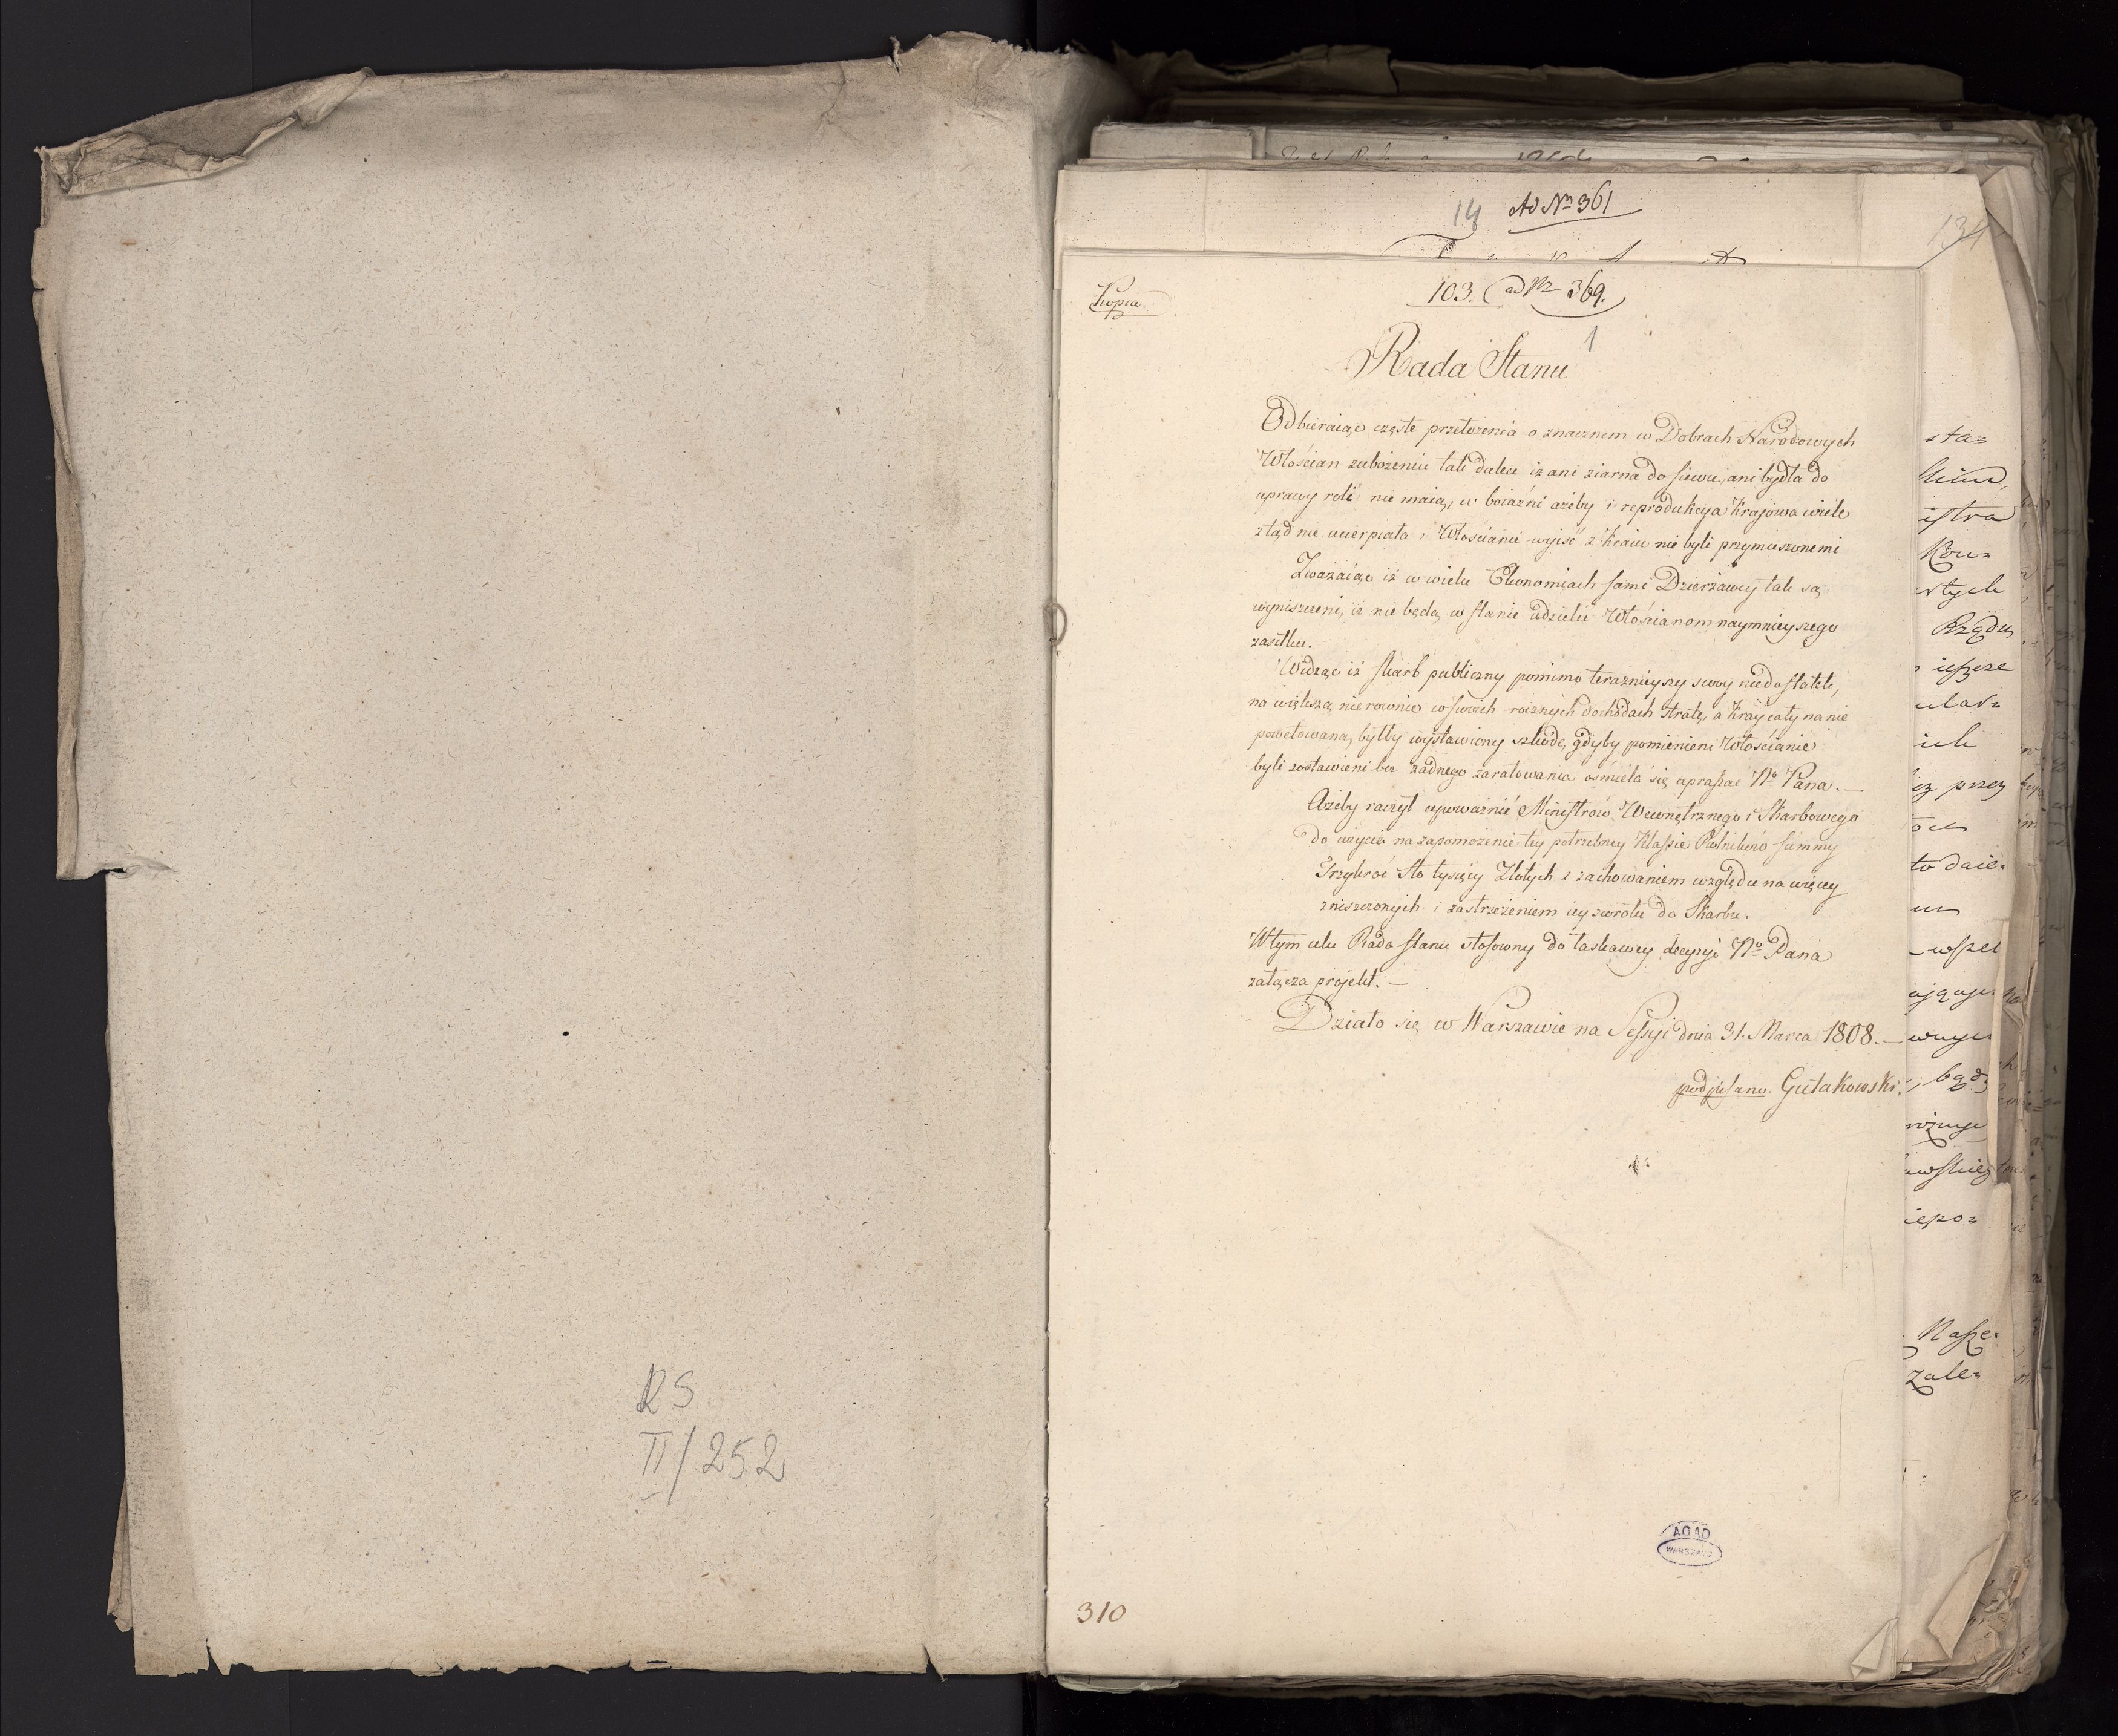 RS
II/252
14 Ad No 361
131
Kopia
103. ad No 369.
1
Rada Stanu
Odbieraiąc częste przełożenia o znacznem w Dobrach Narodowych
Włościan zubożeniu tak dalece iż ani ziarna do siewu, ani bydła do
uprawy roli nie maią, w boiaźni ażeby i reprodukcya Kraiowa wiele
ztąd nie ucierpiała i Włościanie wyiść z Kraiu nie byli przymuszonemi
Zważaiąc iż w wielu Ekonomiach sami Dzierżawcy tak są
wyniszczeni, iż nie będą w stanie udzielić Włościanom naymnieyszego
zasiłku.
Widząc iż skarb publiczny pomimo teraznieyszy swoy niedostatek,
na większą nierownie w swoich rocznych dochodach stratę, a Kray cały na nie
powetowaną byłby wystawiony szkodę, gdyby pomienieni Włościanie
byli zostawieni bez żadnego zaratowania ośmiela się upraszać No Pana. —
Ażeby raczył upoważnić Ministrow Wewnętrznego i Skarbowego
do użycia na zapomożenie tey potrzebney Klassie Rolnikow summy
Trzykroć Sto tysięcy Złotych z zachowaniem względu na więcey
zniszczonych i zastrzeżeniem iey zwrotu do Skarbu.
W tym celu Rada stanu stosowny do łaskawey decyzyi No Pana
załącza projekt. —
Działo się w Warszawie na Sessyi dnia 31. Marca 1808. —
podpisano. Gutakowski.
AGAD
WARSZAWA
310